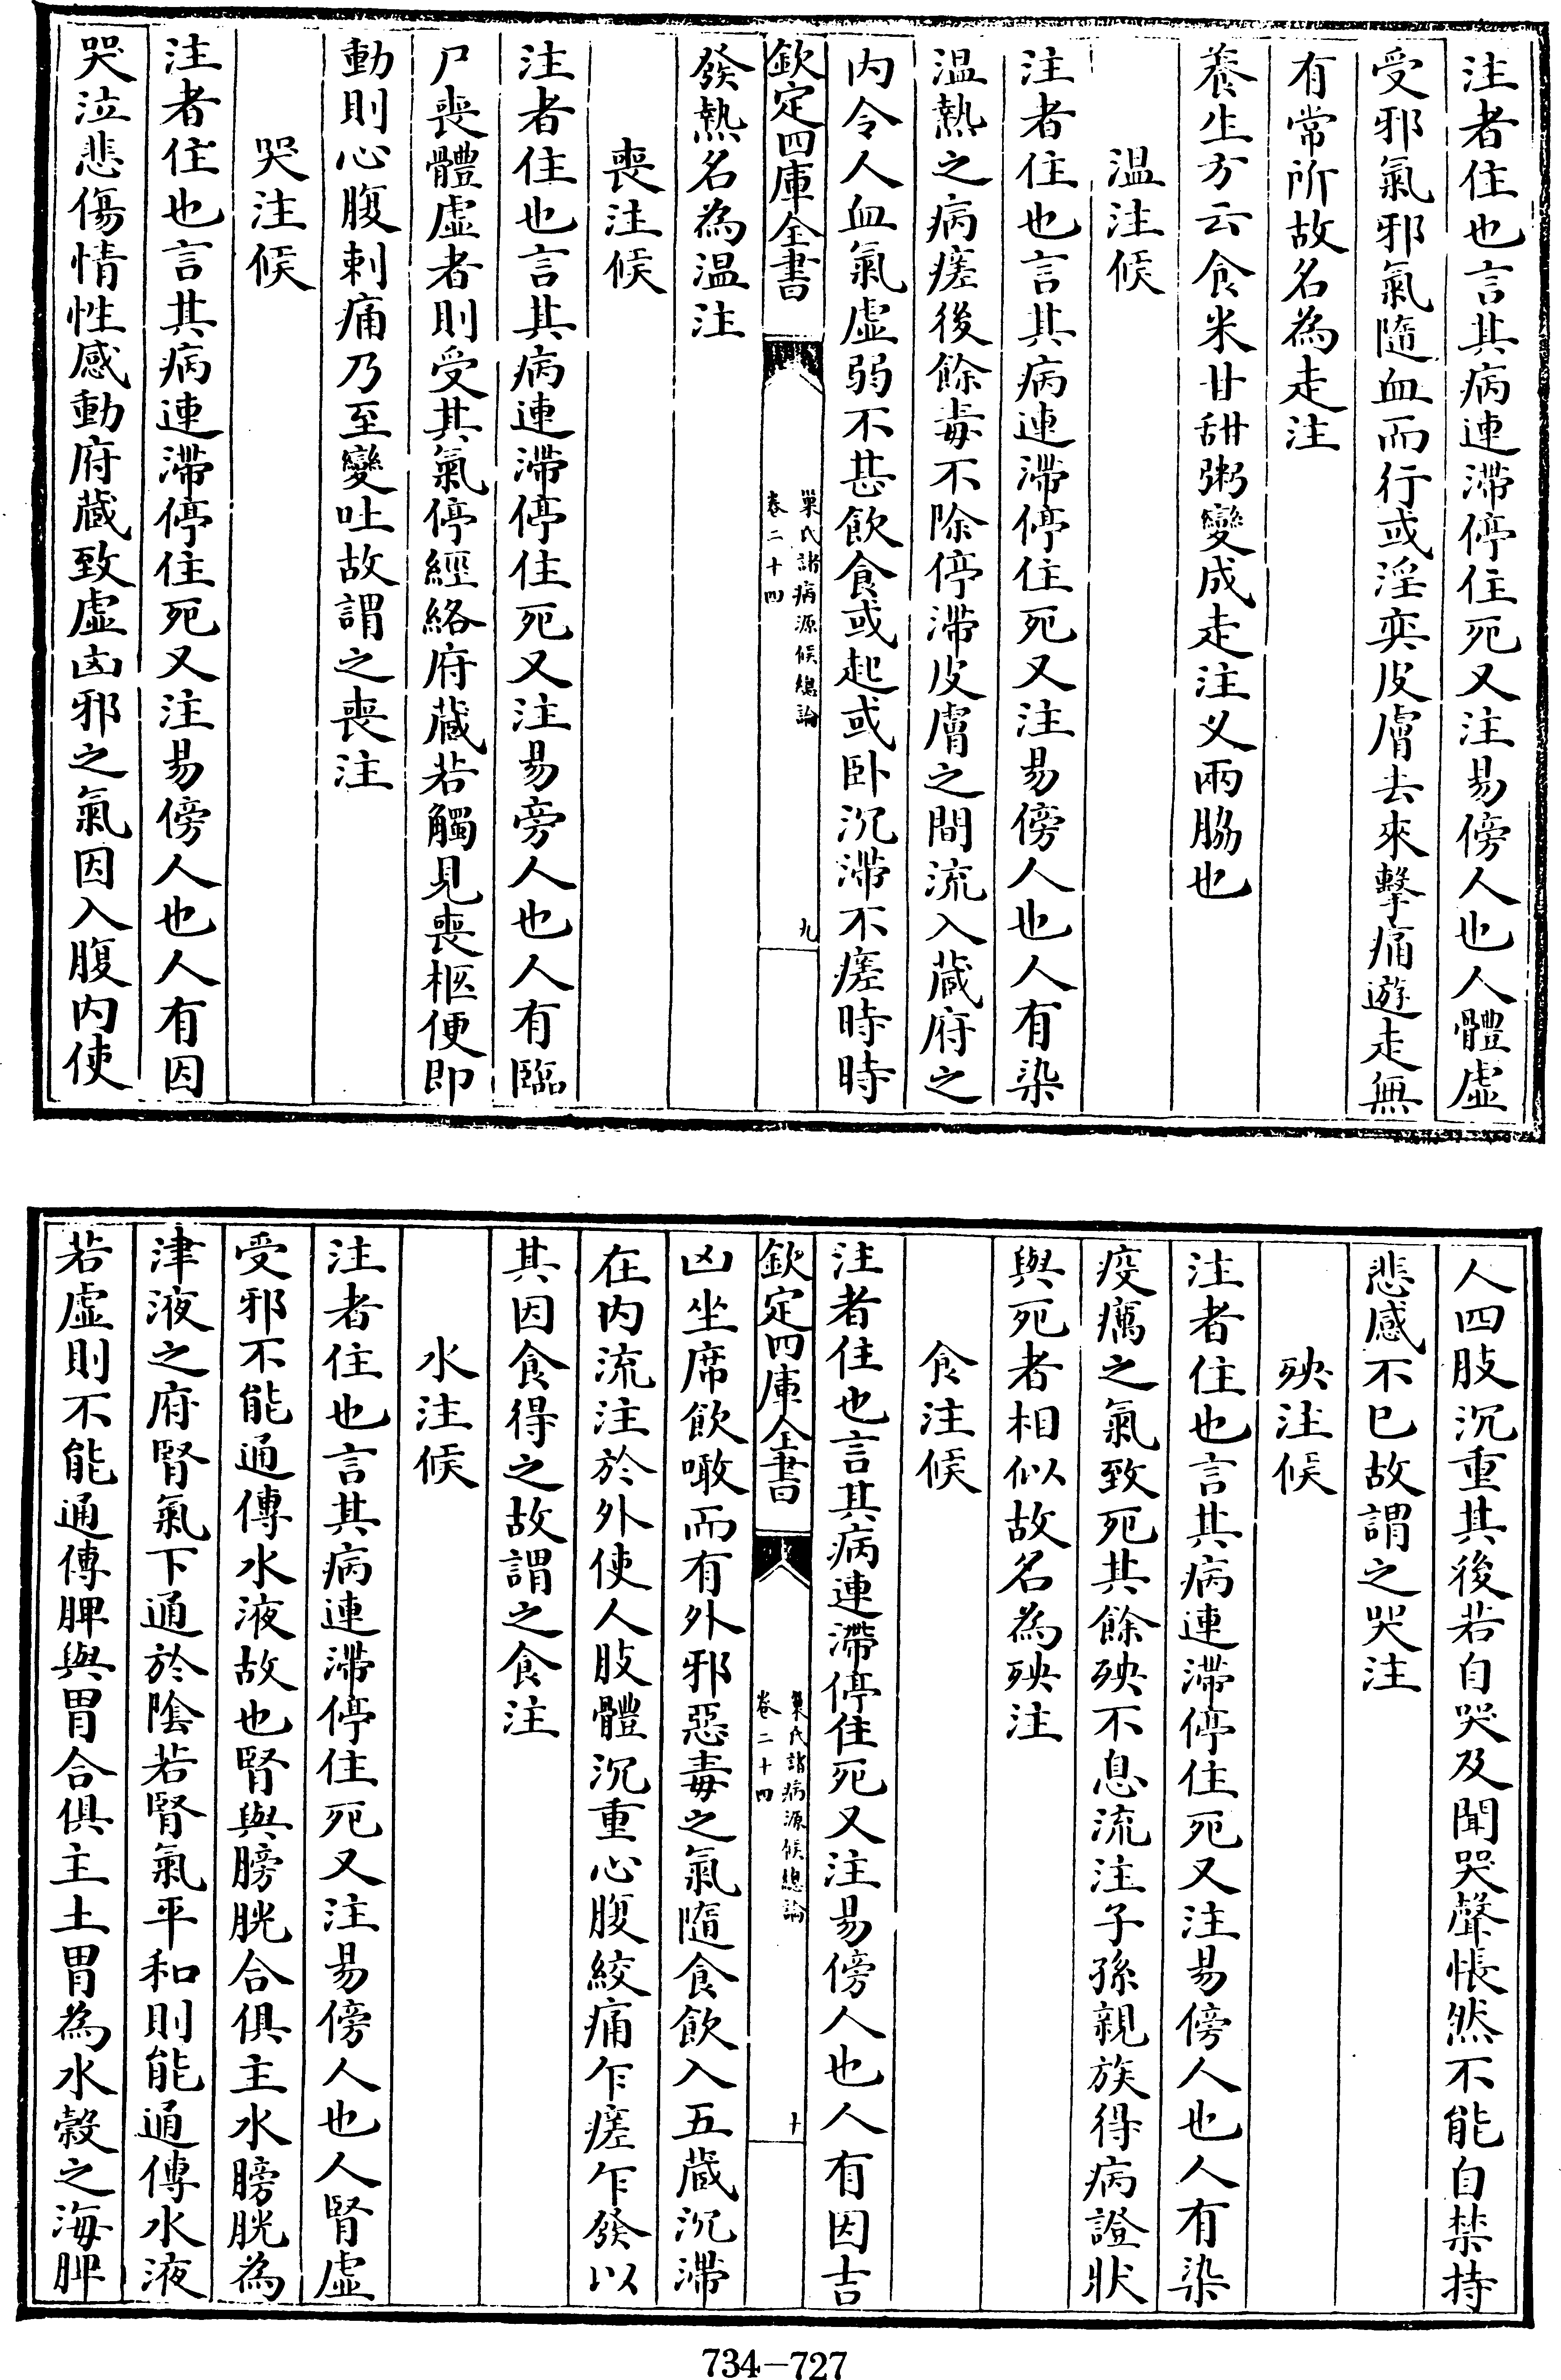 注者住也言其病連滯停住死又注易傍人也人體虛
受邪氣邪氣隨血而行或淫奕皮膚去來擊痛遊走無
有常所故名為走注
養生方云食米甘甜粥變成走注乂兩脇也
温注候
注者住也言其病連滯停住死又注易傍人也人有染
温熱之病瘥後餘毒不除停滯皮膚之間流入蔵府之
内令人血氣虛弱不甚飲食或起或卧沉滯不瘥時時
欽定四庫全書
巢氏諸病源候總論
卷二十四
九
發熱名為温注
喪注候
注者住也言其病連滯停住死又注易旁人也人有臨
尸喪體虛者則受其氣停經絡府蔵若觸見喪柩便即
動則心腹刺痛乃至變吐故謂之喪注
哭注候
注者住也言其病連滯停住死又注易傍人也人有因
哭泣悲傷情性感動府蔵致虛凶邪之氣因入腹内使
人四肢沉重其後若自哭及聞哭聲悵然不能自禁持
悲感不已故謂之哭注
殃注候
注者住也言其病連滯停住死又注易傍人也人有染
疫癘之氣致死其餘殃不息流注子孫親族得病證狀
與死者相似故名為殃注
食注候
注者住也言其病連滯停住死又注易傍人也人有因吉
欽定四庫全書
巢氏諸病源候總論
卷二十四
十
凶坐席飲噉而有外邪惡毒之氣隨食飲入五蔵沉滯
在内流注於外使人肢體沉重心腹絞痛乍瘥乍發以
其因食得之故謂之食注
水注候
注者住也言其病連滯停住死又注易傍人也人腎虛
受邪不能通傳水液故也腎與膀胱合俱主水膀胱為
津液之府腎氣下通於陰若腎氣平和則能通傳水液
若虛則不能通傳脾與胃合俱主土胃為水穀之海脾
734-727